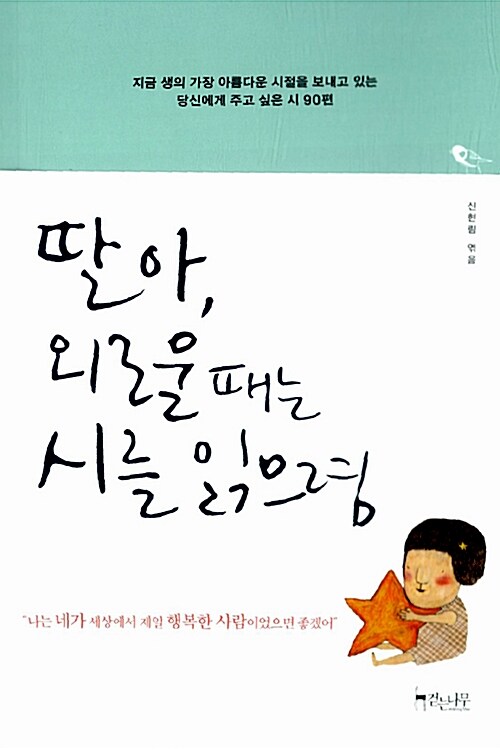 지금 생의 가장 아름다운 시절을 보내고 있는
당신에게 주고 싶은 시 90편
신현림 엮음
딸아,
외로울 때는
시를 읽으렴
"나는 네가 세상에서 제일 행복한 사람이었으면 좋겠어"
걷는나무